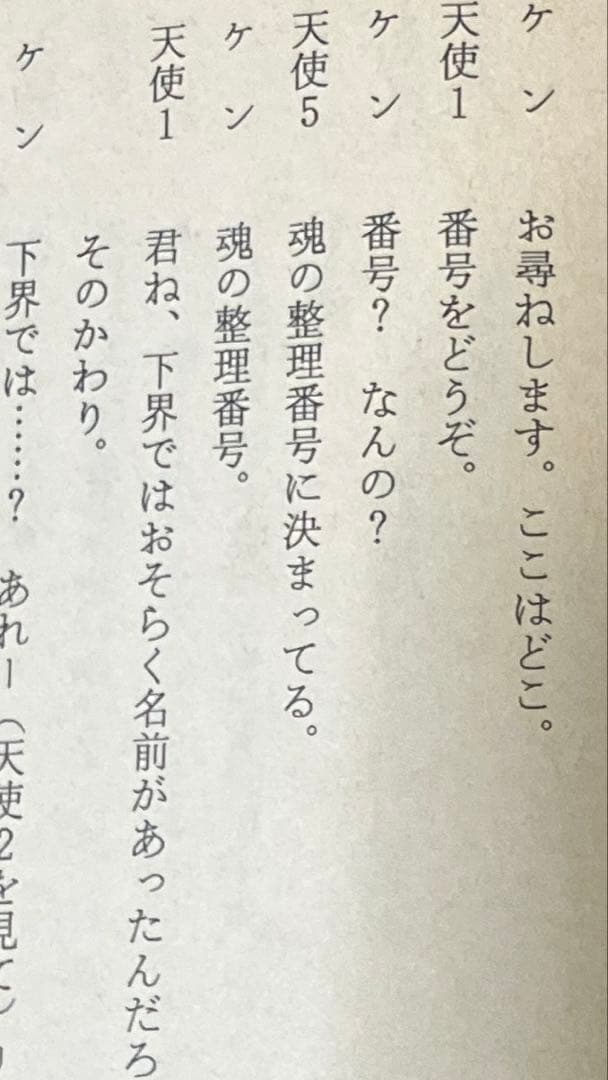 ケン　お尋ねします。ここはどこ。
天使1　番号をどうぞ。
ケン　番号？　なんの？
天使5　魂の整理番号に決まってる。
ケン　魂の整理番号。
天使1　君ね、下界ではおそらく名前があったんだろ
そのかわり。
ケン　下界では……？　あれー（天使2を見て）